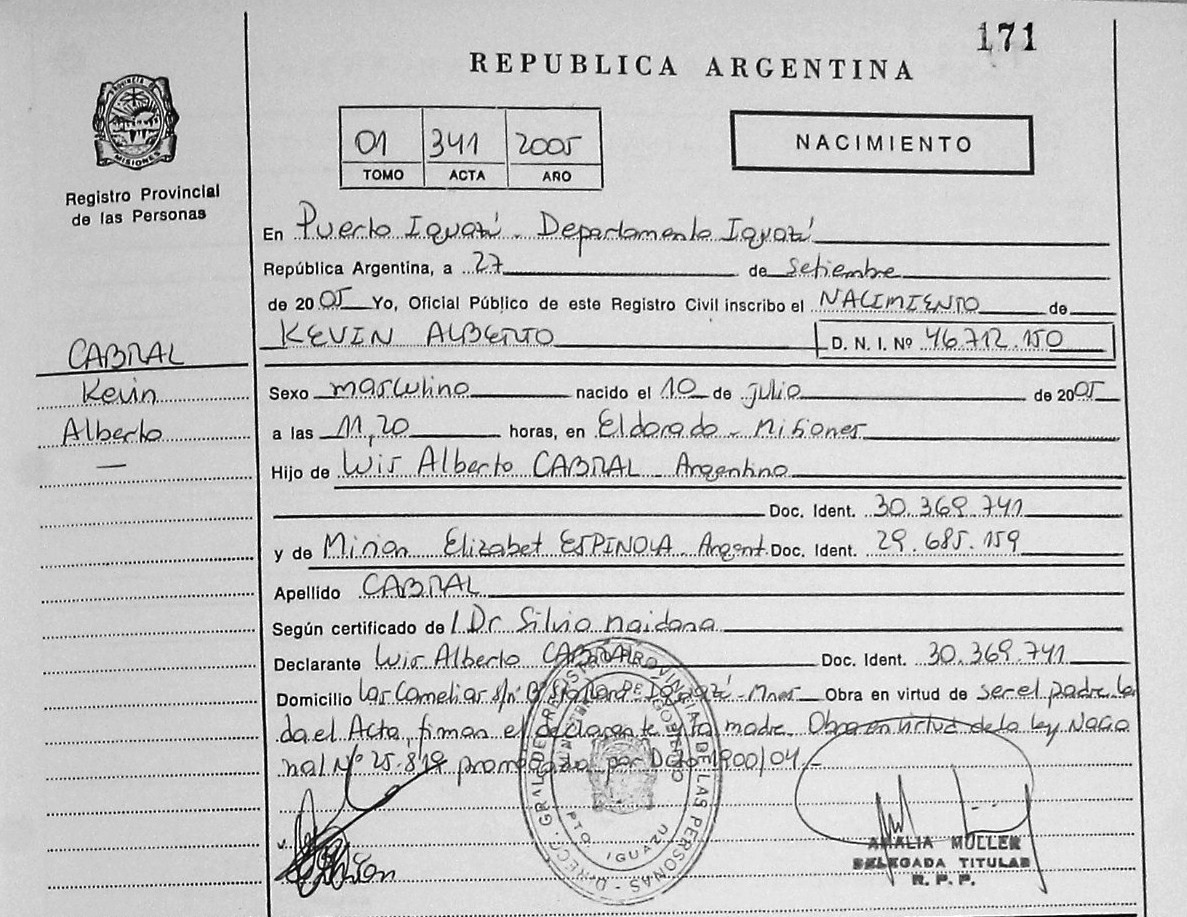 171
REPUBLICA ARGENTINA
PROVINCIA MISIONES
Registro Provincial
de las Personas
01 341 2005
TOMO ACTA AÑO
NACIMIENTO
En Puerto Iguazú - Departamento Iguazú
República Argentina, a 27 de Setiembre
de 2005 Yo, Oficial Público de este Registro Civil inscribo el NACIMIENTO de
KEVIN ALBERTO D. N. I. Nº 46.712.150
CABRAL
Kevin
Alberto
Sexo masculino nacido el 10 de julio de 2005
a las 11,20 horas, en Eldorado - Misiones
Hijo de Luis Alberto CABRAL - Argentino
Doc. Ident. 30.369.741
y de Mirian Elizabet ESPINOLA - Argent. Doc. Ident. 29.685.159
Apellido CABRAL
Según certificado de / Dr Silvio Maidana
Declarante Luis Alberto CABRAL Doc. Ident. 30.369.741
Domicilio Las Camelias s/nº Iguazú - Mnes Obra en virtud de ser el padre. Leí
da el Acta, firman el declarante y la madre. Obra en virtud de la ley Nacio
nal Nº 25.819 por Dcto 1900/04.-
DIRECC. GRAL. DE REGISTRO PROVINCIAL DE LAS PERSONAS
MINISTERIO DE GOBIERNO
PTO. IGUAZU
AMALIA MULLER
DELEGADA TITULAR
R. P. P.